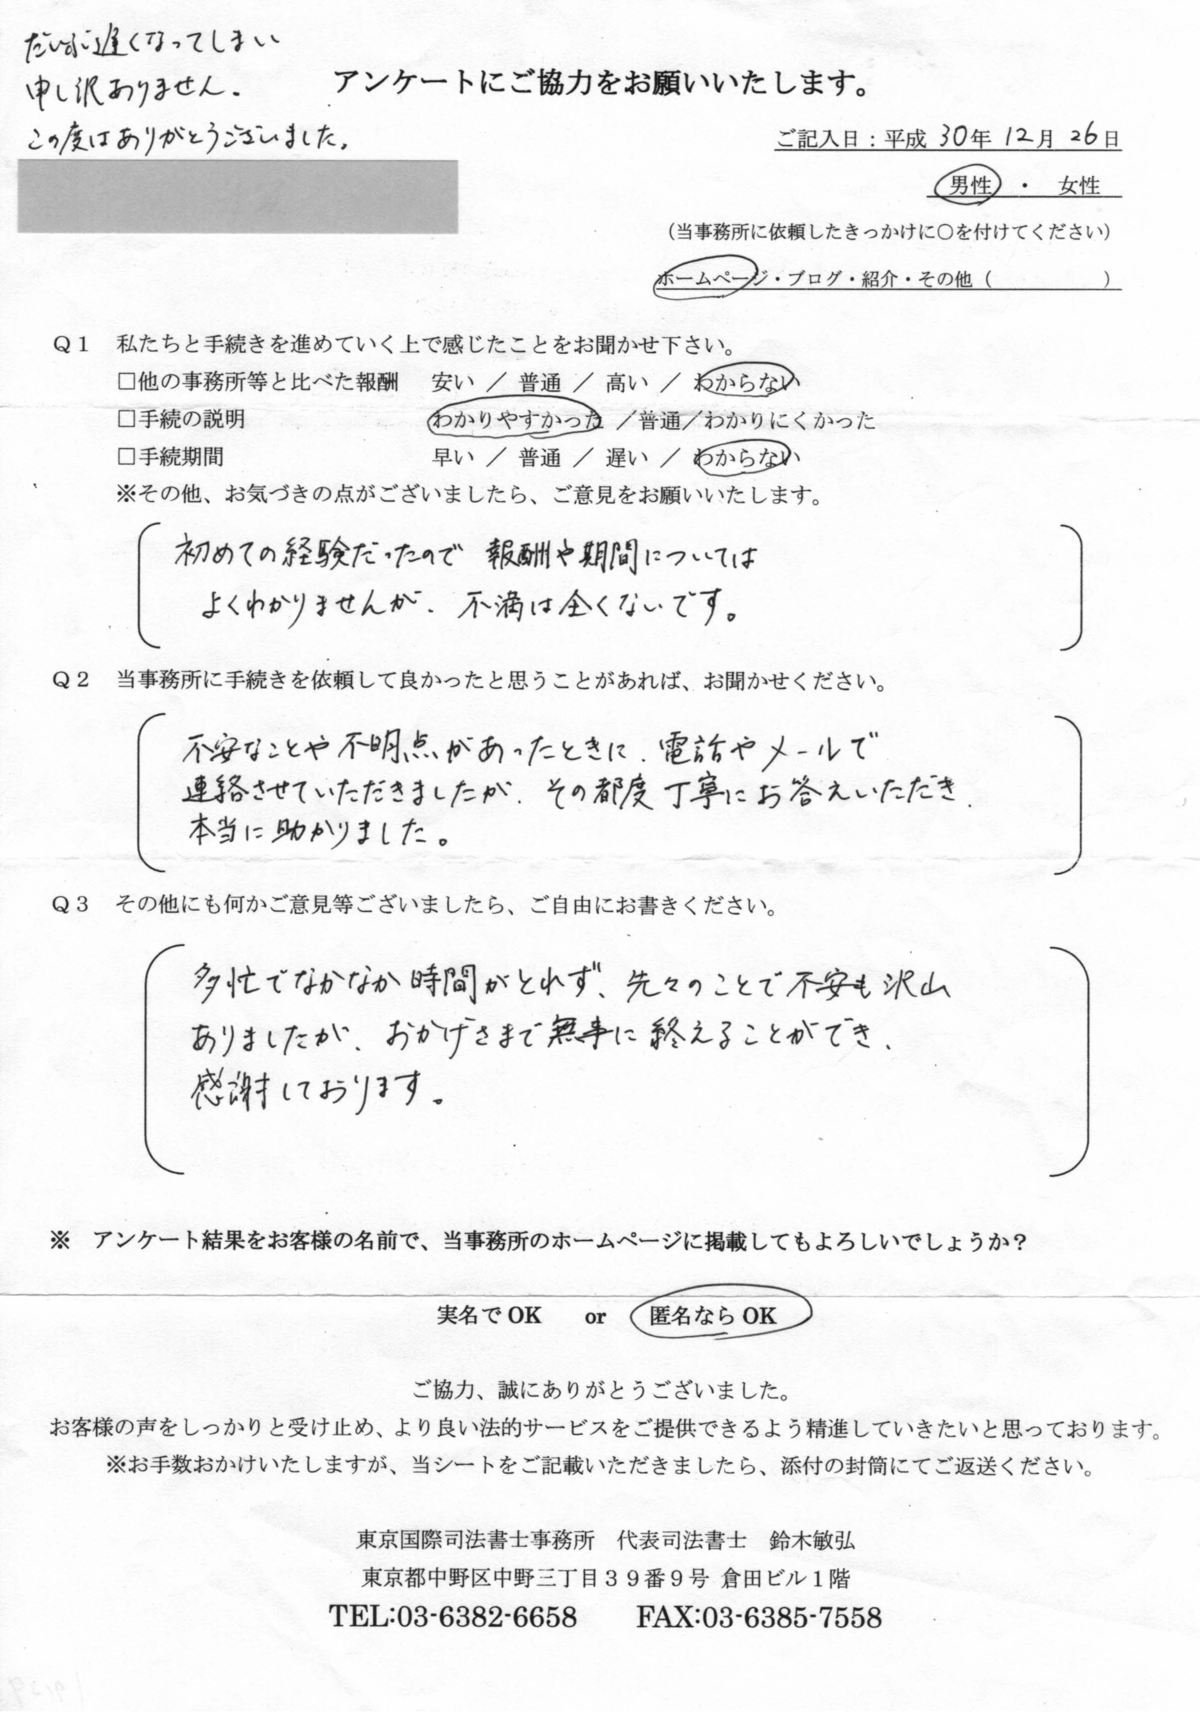 だいぶ遅くなってしまい
申し訳ありません。
この度はありがとうございました。
アンケートにご協力をお願いいたします。
ご記入日：平成 30年 12月 26日
男性 ・ 女性
（当事務所に依頼したきっかけに○を付けてください）
ホームページ・ブログ・紹介・その他（　　　　　）
Ｑ１　私たちと手続きを進めていく上で感じたことをお聞かせ下さい。
□他の事務所等と比べた報酬　安い ／ 普通 ／ 高い ／ わからない
□手続の説明　わかりやすかった ／普通／わかりにくかった
□手続期間　早い ／ 普通 ／ 遅い ／ わからない
※その他、お気づきの点がございましたら、ご意見をお願いいたします。
初めての経験だったので 報酬や期間については
よくわかりませんが、不満は全くないです。
Ｑ２　当事務所に手続きを依頼して良かったと思うことがあれば、お聞かせください。
不安なことや不明点があったときに、電話やメールで
連絡させていただきましたが、その都度丁寧にお答えいただき、
本当に助かりました。
Ｑ３　その他にも何かご意見等ございましたら、ご自由にお書きください。
多忙でなかなか時間がとれず、先々のことで不安も沢山
ありましたが、おかげさまで無事に終えることができ、
感謝しております。
※　アンケート結果をお客様の名前で、当事務所のホームページに掲載してもよろしいでしょうか？
実名で OK　or　匿名なら OK
ご協力、誠にありがとうございました。
お客様の声をしっかりと受け止め、より良い法的サービスをご提供できるよう精進していきたいと思っております。
※お手数おかけいたしますが、当シートをご記載いただきましたら、添付の封筒にてご返送ください。
東京国際司法書士事務所　代表司法書士　鈴木敏弘
東京都中野区中野三丁目３９番９号 倉田ビル１階
TEL:03-6382-6658　FAX:03-6385-7558